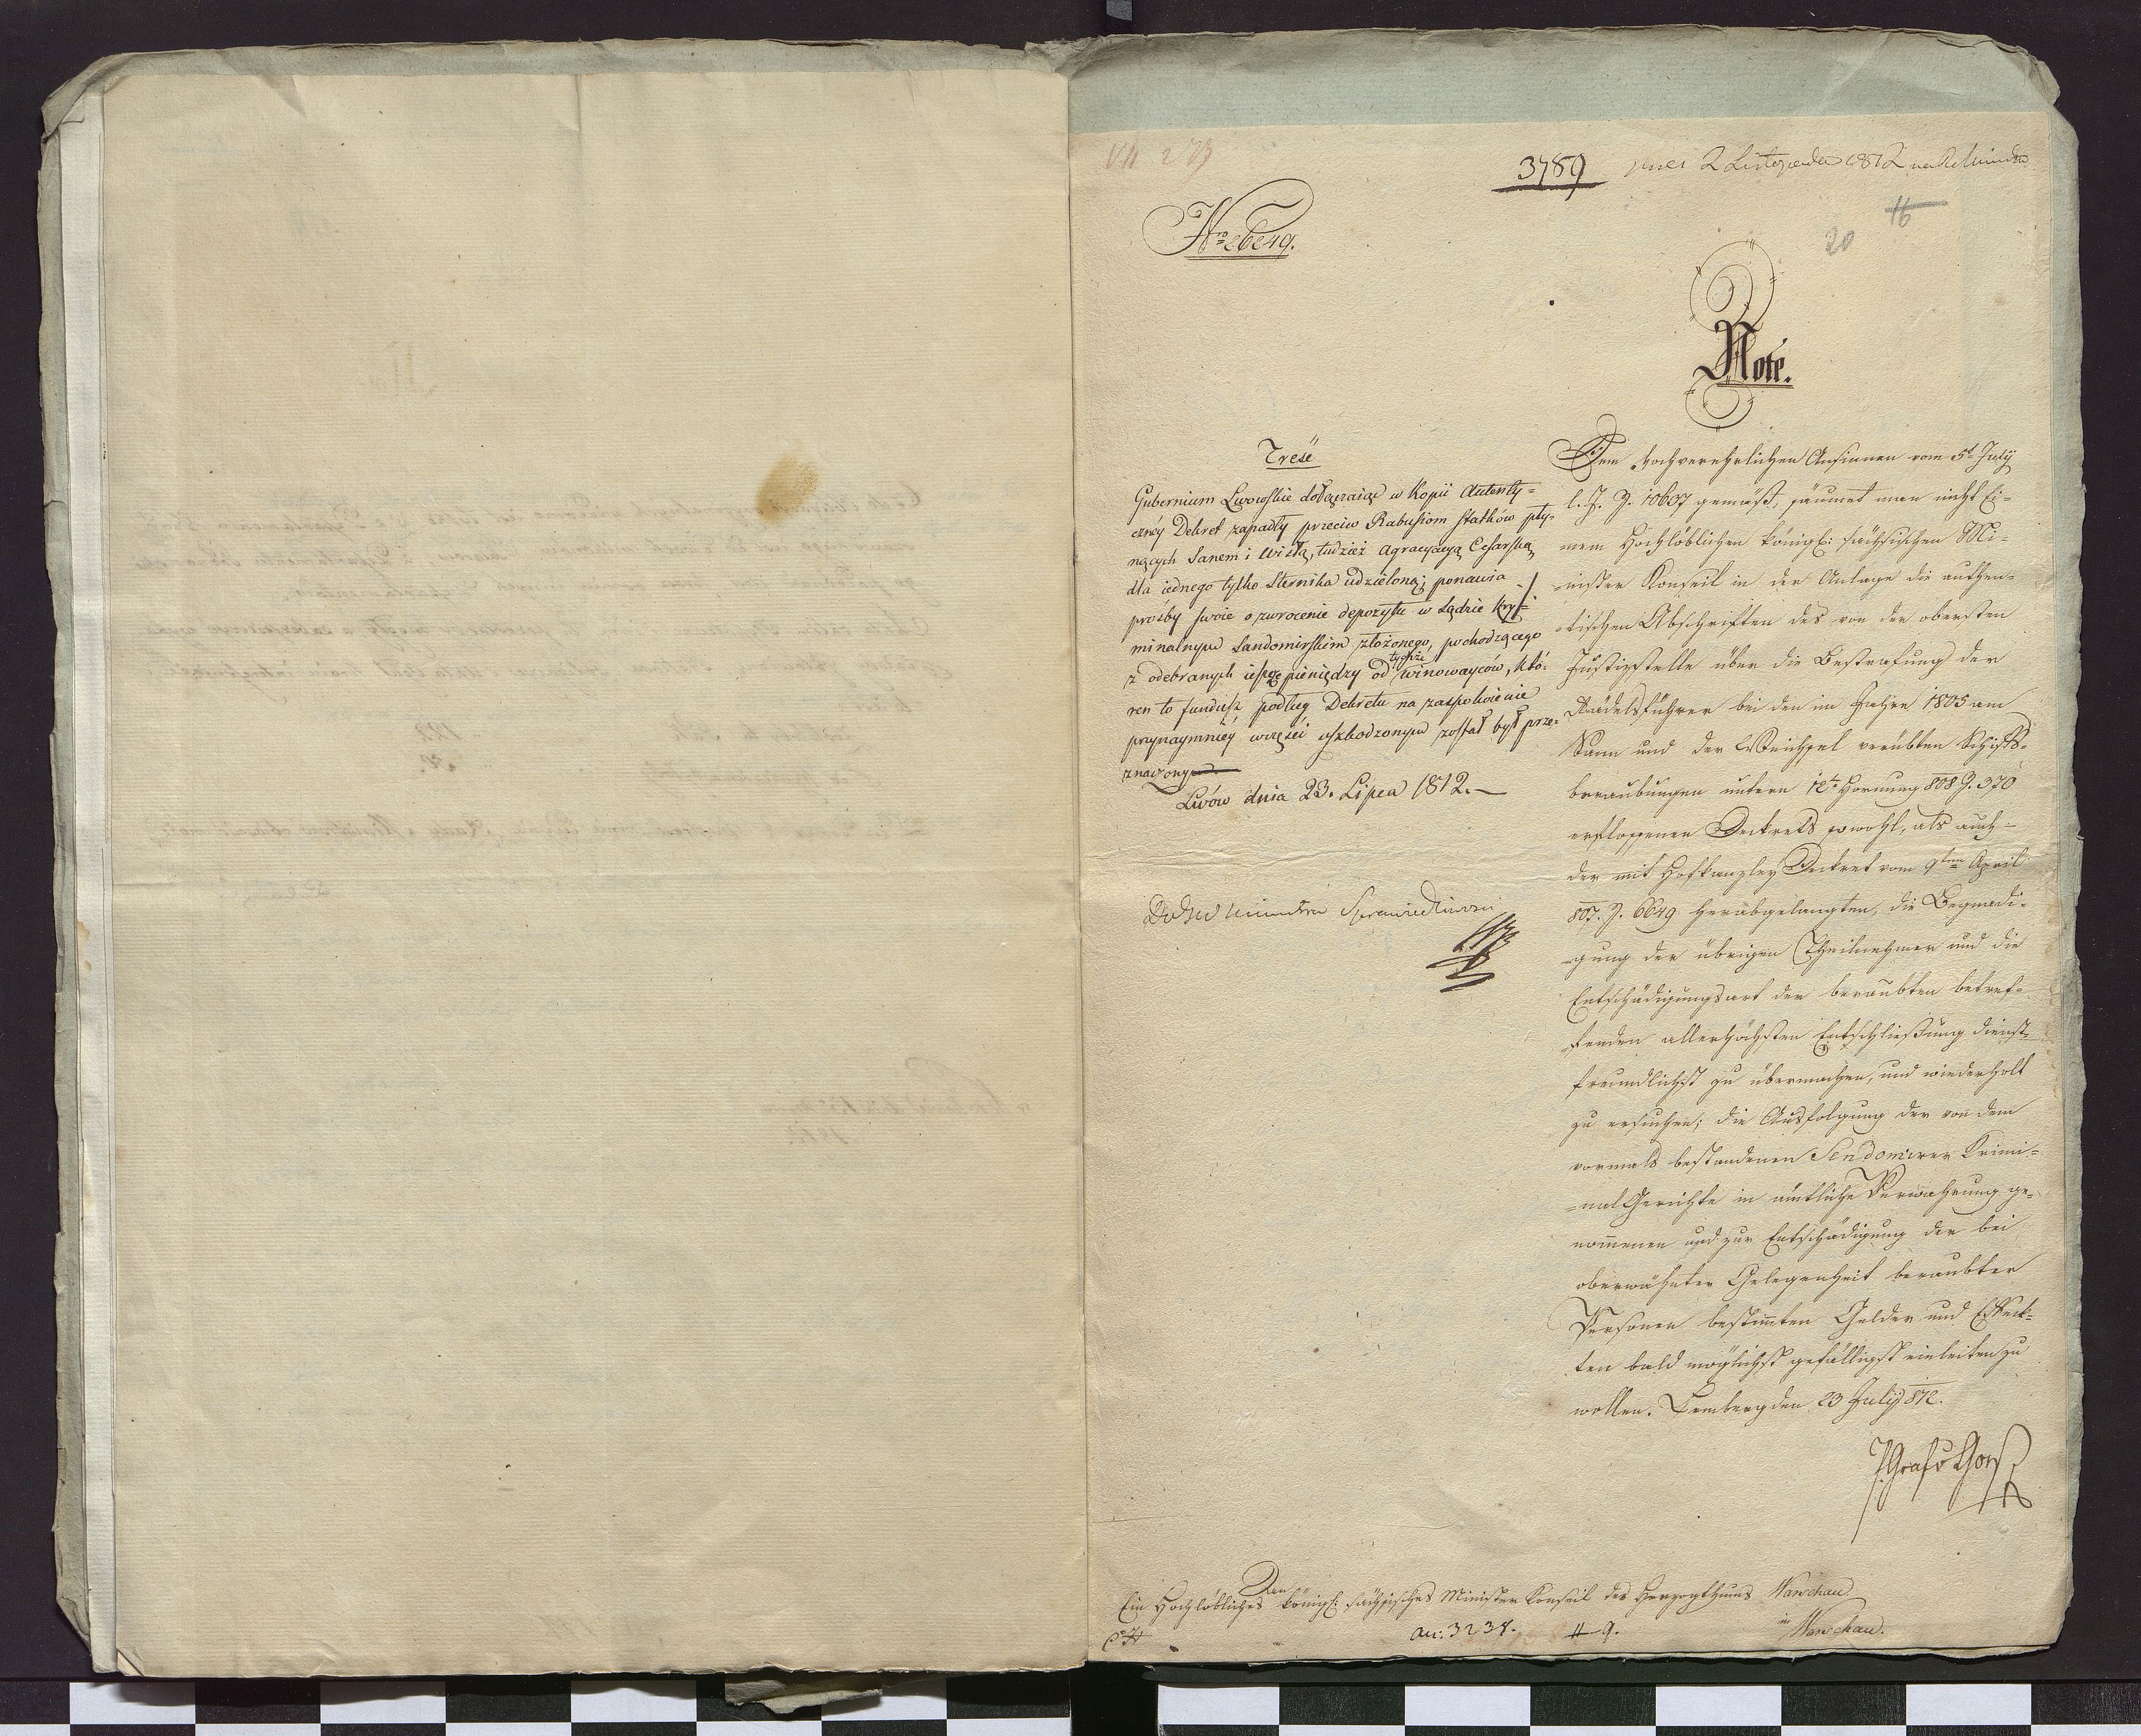 3789
2 Listopada 1812
16
20
Nro 26249.
Note.
Treść
Gubernium Lwowskie dołączaiąc w Kopii Autenty=
czney Dekret zapadły przeciw Rabusiom statków pły=
nących Sanem i Wisłą, tudzież agracyacyą Cesarską
dla iednego tylko Sternika udzieloną; ponawia
prośby swoie o zwrocenie depozytu w Sądzie Kry=
minalnym Sandomirskim złożonego, pochodzącego
z odebranych ieszcze pieniędzy od tychże winowayców, któ=
ren to fundusz podług Dekretu na zaspokoienie
przynaymniey części uszkodzonym został był prze=
znaczony
Lwów dnia 23. Lipca 1812.—
Do Ministra Sprawiedliwości
Dem hochverehrlichen Ansinnen vom 5t July
l. J. Z. 10637 gemäß, säumet man nicht Ei=
nem Hochlöblichen königl: sächsischen Mi=
nister Konseil in der Anlage die authen=
tischen Abschriften des von der obersten
Justizstelle über die Bestrafung der
Rädelsführer bei den im Jahre 1805 am
Sann und der Weichsel verübten Schiffs=
beraubungen unterm 12t Hornung 808 Z. 370
erflossenen Dekrets sowohl, als auch
der mit Hofkanzley Dekret vom 9ten April
807. Z. 6649 herabgelangten, die Begnadi=
gung der übrigen Theilnehmer und die
Entschädigungsart der beraubten betref=
fenden allerhöchsten Entschließung dienst=
freundlichst zu übermachen, und wiederholt
zu ersuchen; die Ausfolgung der von dem
vormals bestandenen Sendomirer Krimi=
nal Gerichte in ämtliche Verwahrung ge=
nommenen und zur Entschädigung der bei
oberwähnter Gelegenheit beraubter
Personen bestimmten Gelder und Effeck=
ten bald möglichst gefälligst einleiten zu
wollen. Lemberg den 23 July 812.
Graf v Goëß
An
Ein Hochlöbliches königl: sächsisches Minister Konseil des Herzogthums Warschau
in
Warschau.
ad: 3238. # 9.